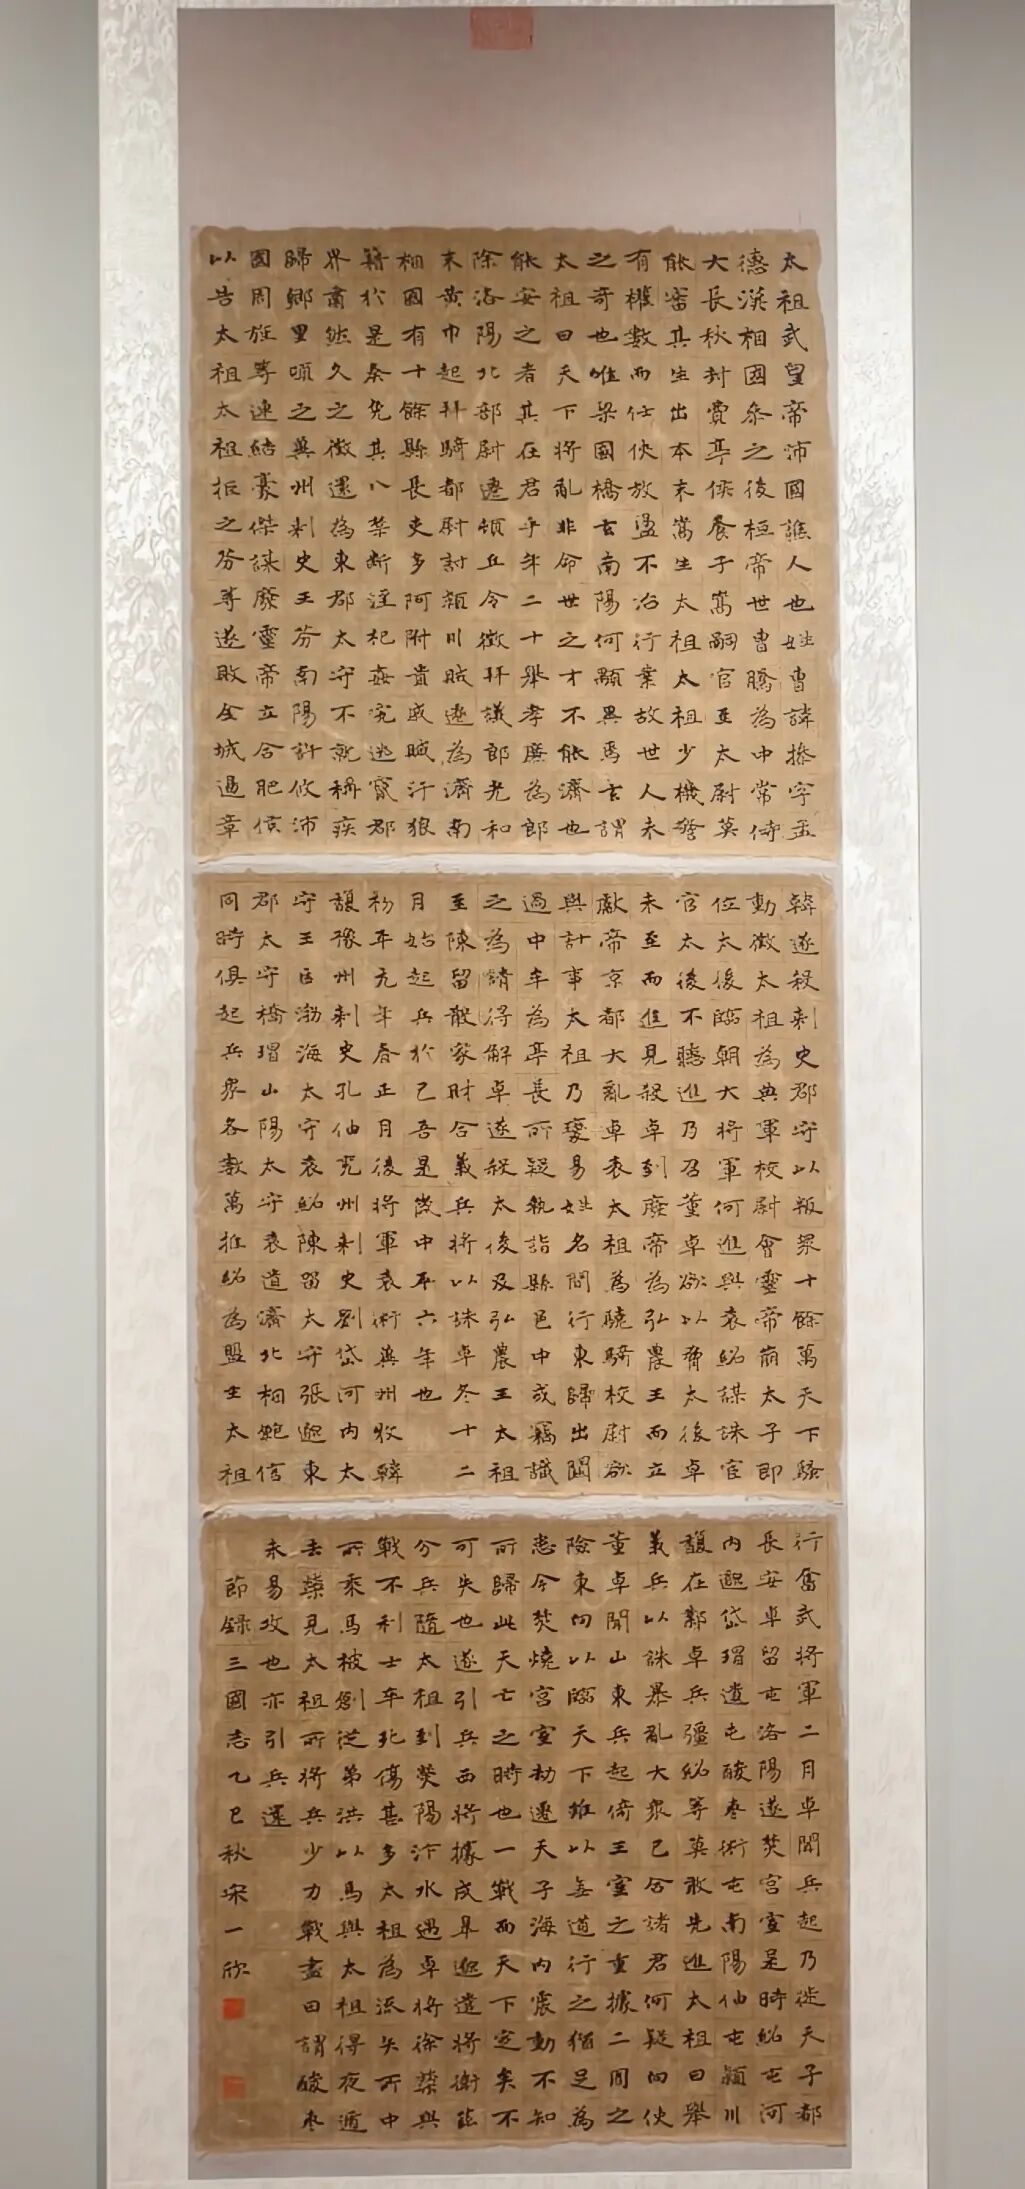 太祖武望帝沛國譙人也姓曹諱操字孟
德漢相國參之後桓帝世曹騰為中常侍
大長秋封費亭侯養子嵩嗣官至太尉莫
能審其生出本末嵩生太祖太祖少機警
有權數而任俠放蕩不治行業故世人未
之奇也唯梁國橋玄南陽何顒異焉玄謂
太祖曰天下將亂非命世之才不能濟也
能安之者其在君乎年二十舉孝廉為郎
除洛陽北部尉遷頓丘令徵拜議郎光和
末黃巾起拜騎都尉討潁川賊遷為濟南
相國有十餘縣長吏多阿附貴戚贓汙狼
籍於是奏免其八禁斷淫祀姦宄逃竄郡
界肅然久之徵還為東郡太守不就稱疾
歸鄉里頃之冀州刺史王芬南陽許攸沛
國周旌等連結豪傑謀廢靈帝立合肥侯
以告太祖太祖拒之芬等遂敗金城邊章
韓遂殺刺史郡守以叛眾十餘萬天下騷
動徵太祖為典軍校尉會靈帝崩太子即
位太後臨朝大將軍何進與袁紹謀誅宦
官太後不聽進乃召董卓欲以脅太後卓
未至而進見殺卓到廢帝為弘農王而立
獻帝京都大亂卓表太祖為驍騎校尉欲
與計事太祖乃變易姓名間行東歸出關
過中牟為亭長所疑執詣縣邑中或竊識
之為請得解卓遂殺太後及弘農王太祖
至陳留散家財合義兵將以誅卓冬十二
月始起兵於己吾是歲中平六年也
初平元年春正月後將軍袁術冀州牧韓
馥豫州刺史孔伷兗州刺史劉岱河內太
守王匡渤海太守袁紹陳留太守張邈東
郡太守橋瑁山陽太守袁遺濟北相鮑信
同時俱起兵眾各數萬推紹為盟主太祖
行奮武將軍二月卓聞兵起乃徙天子都
長安卓留屯洛陽遂焚宮室是時紹屯河
內邈岱瑁遺屯酸棗術屯南陽伷屯潁川
馥在鄴卓兵彊紹等莫敢先進太祖曰舉
義兵以誅暴亂大眾已合諸君何疑向使
董卓聞山東兵起倚王室之重據二周之
險東向以臨天下雖以無道行之猶足為
患今焚燒宮室劫遷天子海內震動不知
所歸此天亡之時也一戰而天下定矣不
可失也遂引兵西將據成皋邈遣將衛茲
分兵隨太祖到滎陽汴水遇卓將徐榮與
戰不利士卒死傷甚多太祖為流矢所中
所乘馬被創從弟洪以馬與太祖得夜遁
去榮見太祖所將兵少力戰盡日謂酸棗
未易攻也亦引兵還
節錄三國志乙巳秋宋一欣